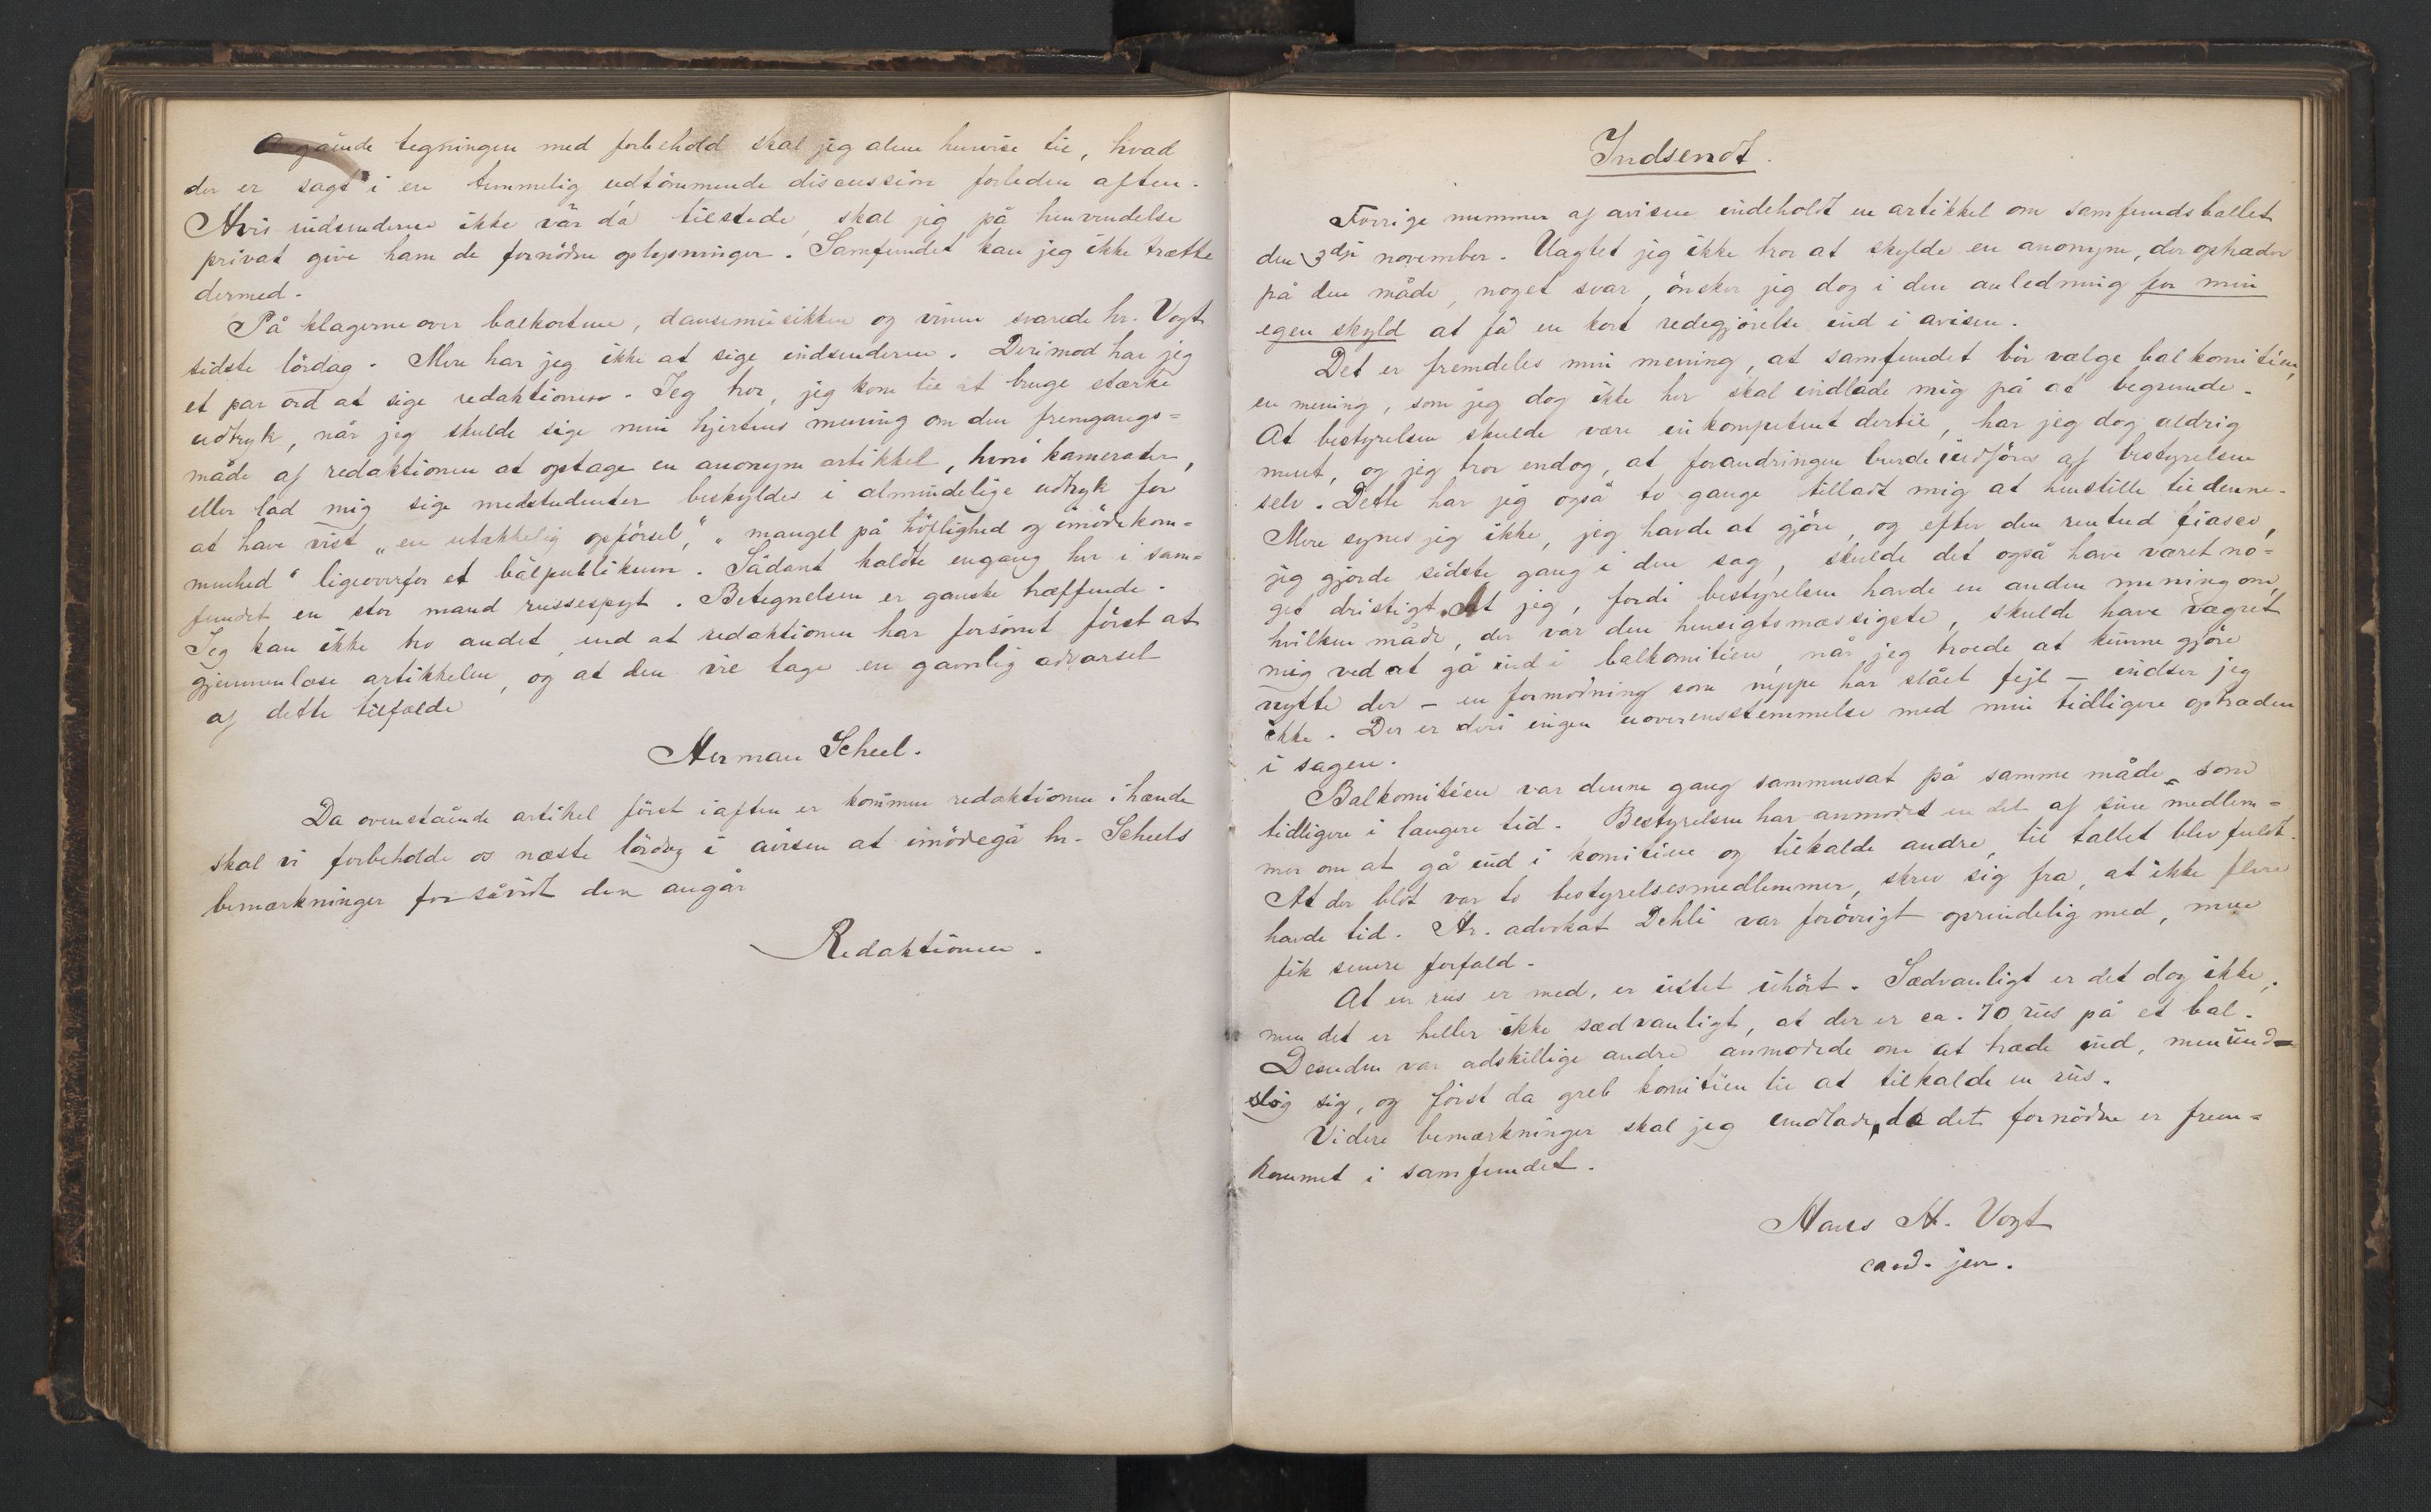 Angående tegningen med forbehold skal jeg alene henvise til, hvad
der er sagt i en temmelig udtömmende discussion forleden aften.
Hvis indsenderne ikke var da tilstede, skal jeg på henvendelse
privat give ham de fornödne oplysninger. Samfundet kan jeg ikke trætte
dermed.
På klagerne over balkortene, dansemusikken og vinen svarede hr. Vogt
sidste lördag. Mere har jeg ikke at sige indsenderen. Derimod har jeg
et par ord at sige redaktionen. Jeg tror, jeg kom til at bruge stærke
udtryk, når jeg skulde sige min hjertens mening om den fremgangs=
måde af redaktionen at optage en anonym artikkel, hvori kamerater,
eller lad mig sige medstudenter beskyldes i almindelige udtryk for
at have vist „en utækkelig opförsel", „mangel på höflighed og imödekom=
menhed" ligeoverfor et balpublikum. Sådant kaldte engang her i sam=
fundet en stor mand russespyt. Betegnelsen er ganske træffende.
Jeg kan ikke tro andet, end at redaktionen har forsömt först at
gjennemlæse artikkelen, og at den vil tage en gavnlig advarsel
af dette tilfælde
Herman Scheel.
Da ovenstående artikel först iaften er kommen redaktionen ihænde
skal vi forbeholde os næste lördag i avisen at imödegå hr. Scheels
bemærkninger forsåvidt den angår
Redaktionen.
Indsendt.
Forrige nummer af avisen indeholdt en artikkel om samfundsballet
den 3dje november. Uagtet jeg ikke tror at skylde en anonym, der optræder
på den måde, noget svar, önsker jeg dog i den anledning for min
egen skyld at få en kort redegjörelse ind i avisen.
Det er fremdeles min mening, at samfundet bör vælge balkomitéen,
en mening, som jeg dog ikke her skal indlade mig på at begrunde.
At bestyrelsen skulde være inkompetent dertil, har jeg dog aldrig
ment, og jeg tror endog, at forandringen burde indföres af bestyrelsen
selv. Dette har jeg også to gange tilladt mig at henstille til denne.
Mere synes jeg ikke, jeg havde at gjöre, og efter den rentud fiasco,
jeg gjorde sidste gang i den sag, skulde det også have været no=
get dristigt. At jeg, fordi bestyrelsen havde en anden mening om,
hvilken måde, der var den hensigtsmæssigste, skulde have vægret
mig ved at gå ind i balkomitéen, når jeg troede at kunne gjöre
nytte der – en formodning som neppe har slået fejl – indser jeg
ikke. Der er deri ingen uoverensstemmelse med min tidligere optræden
i sagen.
Balkomitéen var denne gang sammensat på samme måde som
tidligere i længere tid. Bestyrelsen har anmodet en del af sine medlem=
mer om at gå ind i komitéen og tilkalde andre, til tallet blev fuldt.
At der blot var to bestyrelsesmedlemmer, skrev sig fra, at ikke flere
havde tid. Hr. advokat Dehli var forövrigt oprindelig med, men
fik senere forfald.
At en rus er med, er intet uhört. Sædvanligt er det dog ikke,
men det er heller ikke sædvanligt, at der er ca. 70 rus på et bal.
Desuden var adskillige andre anmodede om at træde ind, men und=
slog sig, og först da greb komitéen til at tilkalde en rus.
Videre bemærkninger skal jeg undlade, da det fornödne er frem=
kommet i samfundet.
Hans H. Vogt
cand. jur.